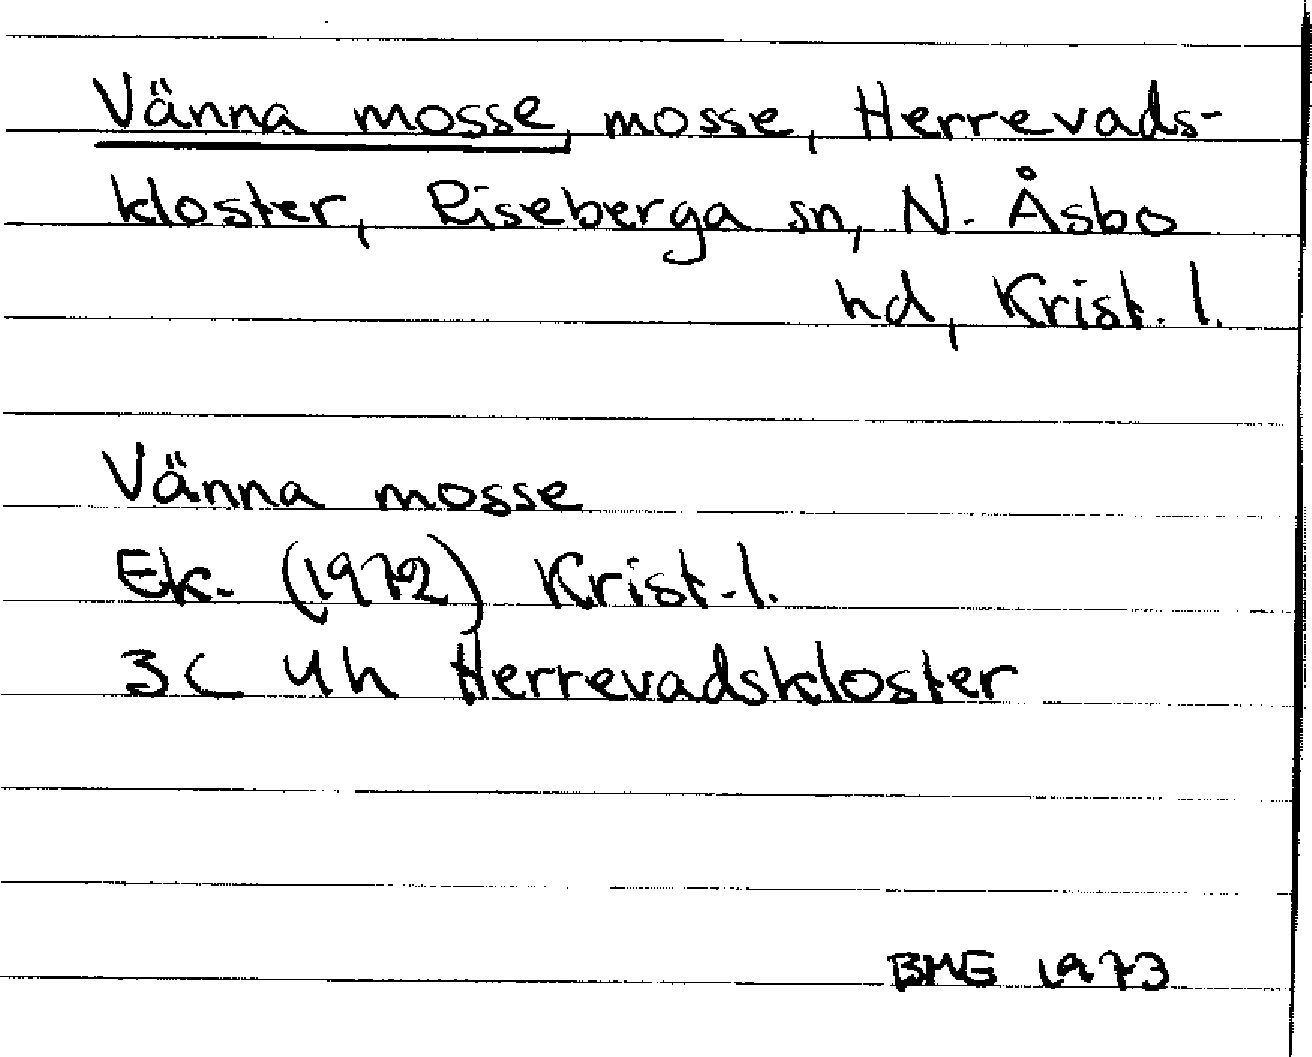 Vänna mosse, mosse, Herrevads-
kloster, Riseberga sn, N. Åsbo
hd, Krist. l.
Vänna mosse
Ek. (1972) Krist. l.
3C 4h Herrevadskloster
BME 1973